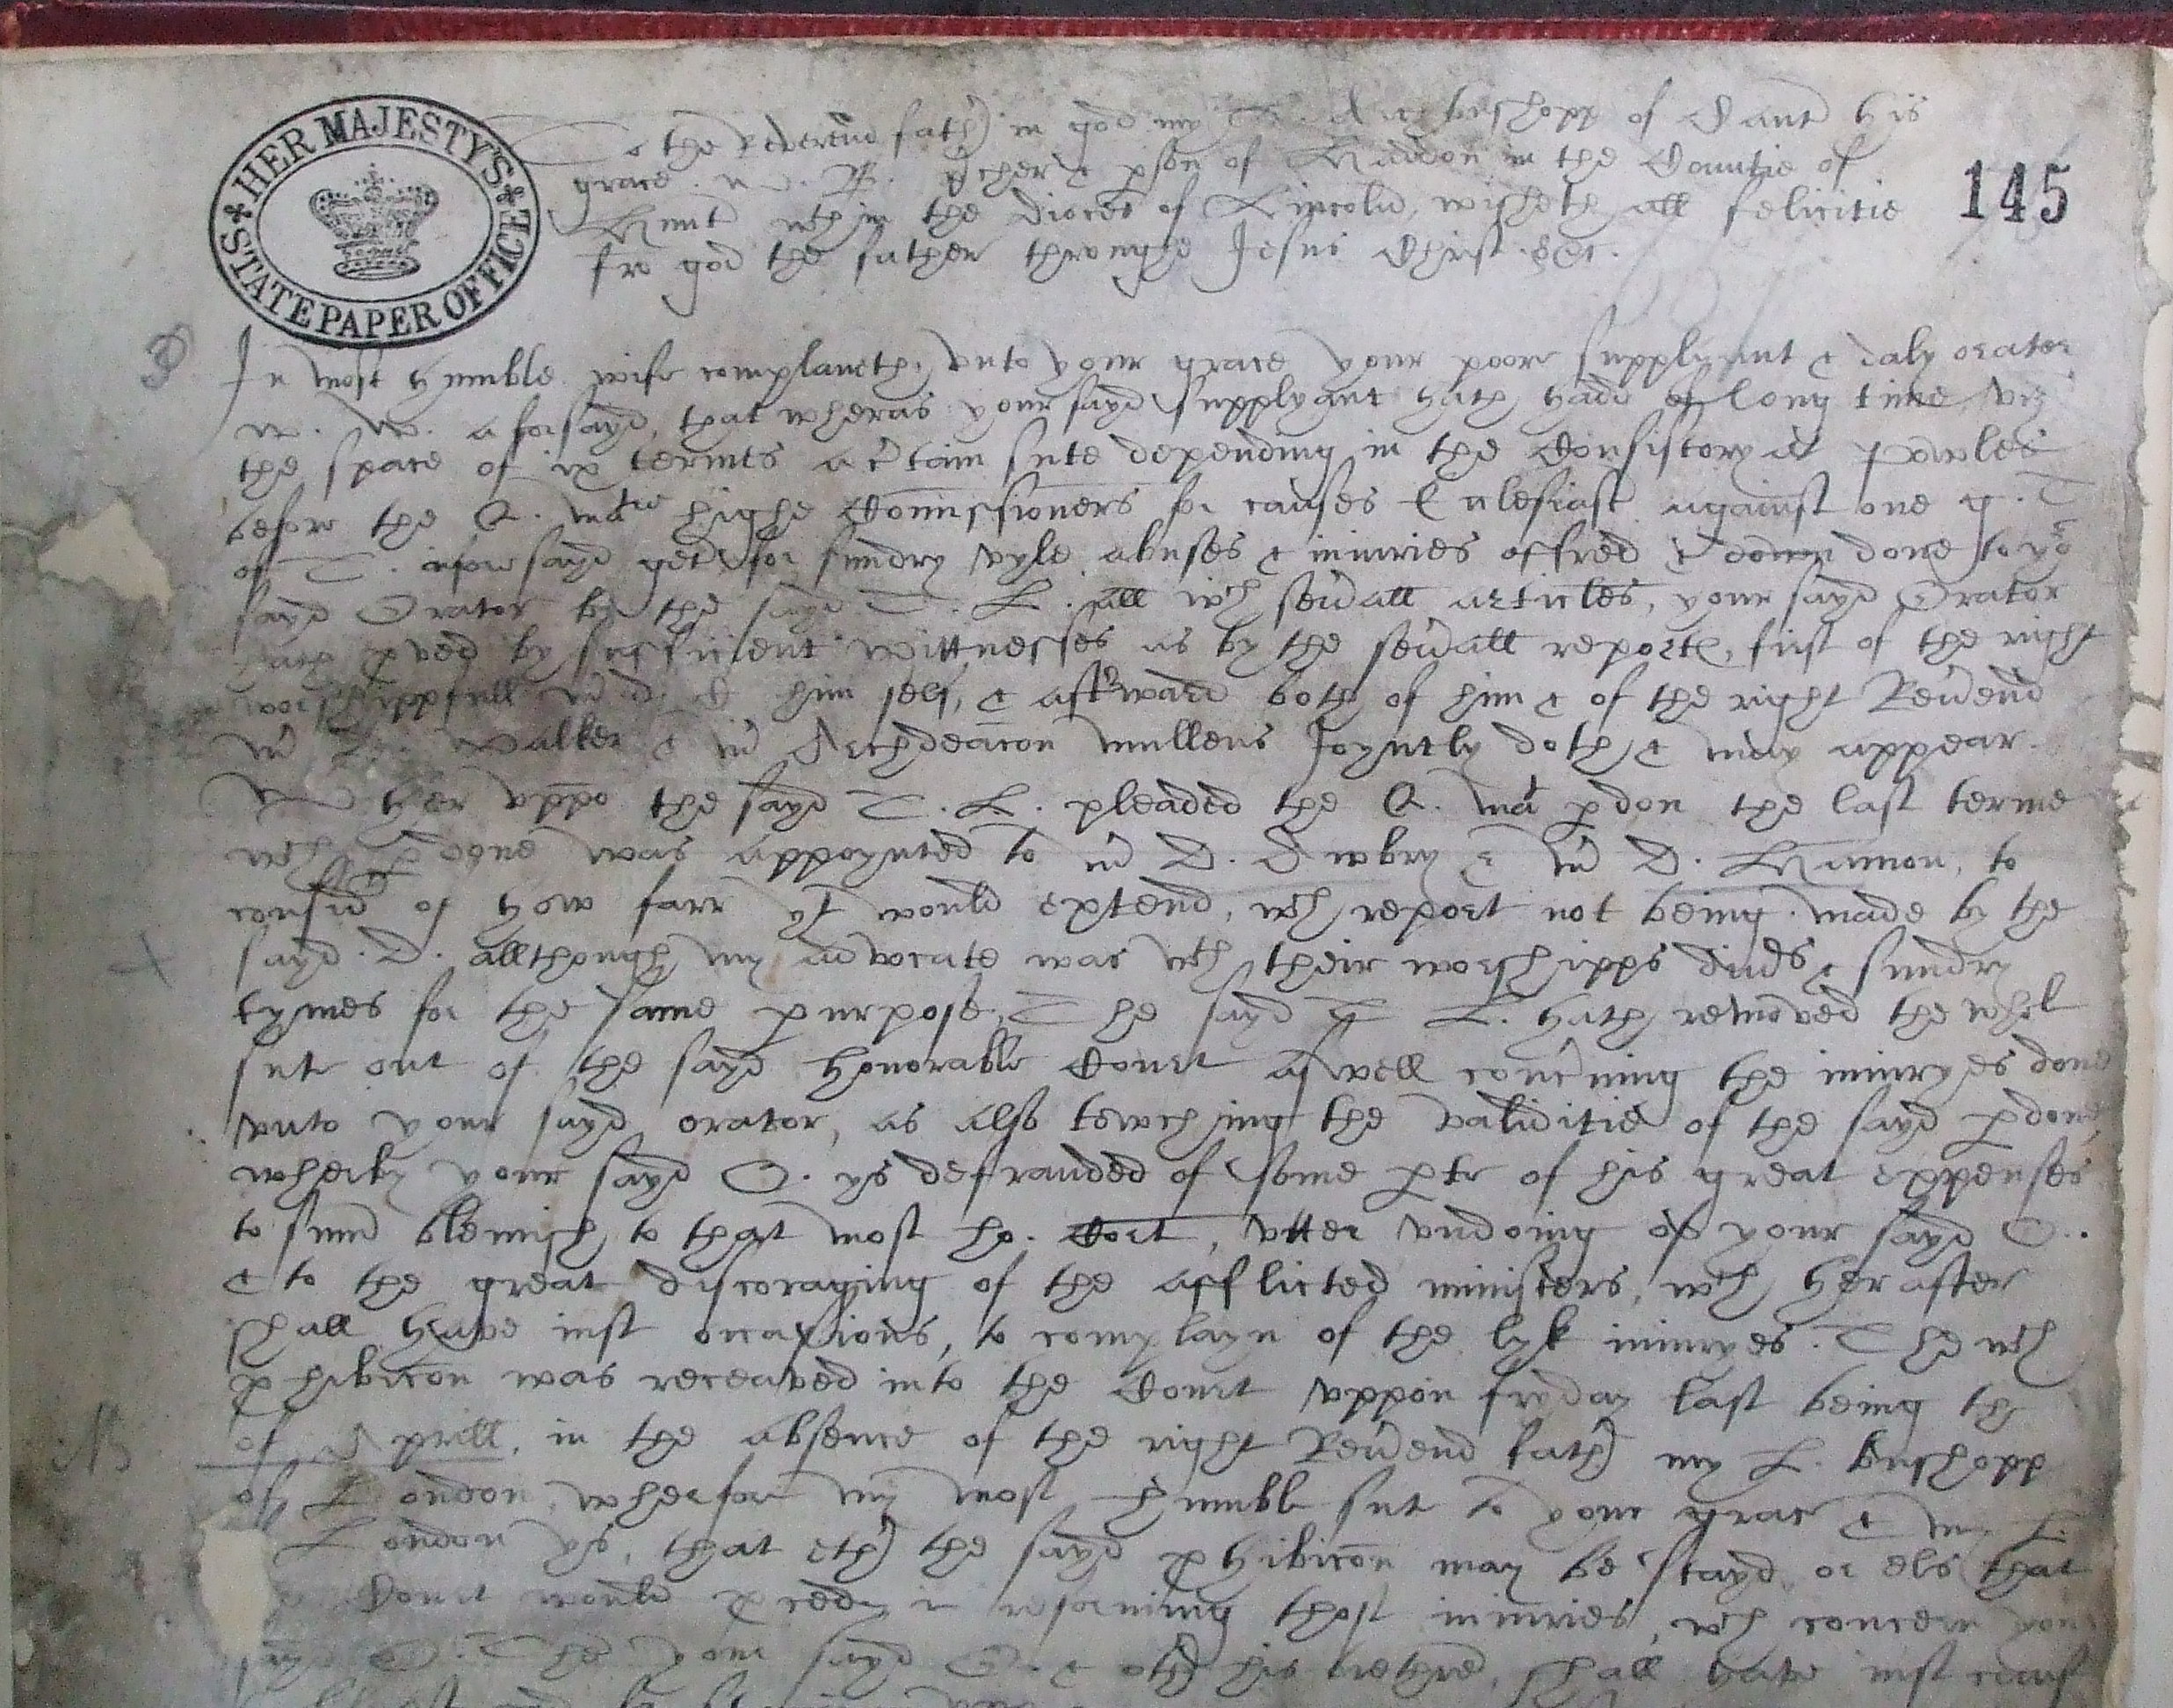 HER MAJESTY'S STATE PAPER OFFICE
145
To the reverend fath) in god my L. Archbushopp of Cant his
grace. w. W. prson of in the Countie of
Hunt wthin the dioces of Lincoln, wisheth all felicitie
fro god the father throughe Jesus Christ. &c.
In most humble wise complaneth, vnto your grace your poore supplyant & daly orator
w. W. aforsayd, that wheras your sayd supplyant hath hadd of long time, viz
the space of ix termes a ctain sute depending in the Consistory at Pawles
before the Q. matie highe Comissioners for causes Ecclesiast against one
of L. aforsayd for sundry vyle abuses & iniuries offred & done to yor
sayd Orator by the sayd T. L. all wch seuall articles, your sayd Orator
hath pued by sufficient wittnesses as by the seuall report, first of the right
worshippfull him self, & aftrward both of him & of the right Reuend
mr Walker & mr Archdeacon mullens Joyntly doth & may appear.
Wher vppo the sayd T. L. pleaded the Q. ma pdon the last terme
wch was appoynted to mr D. & mr D. Hamon, to
consid of how farr yt would extend, wch report not being made by the
sayd D. allthough my advocate was wth their worshipps diuers & sundry
tymes for the same purpose, The sayd T. L. hath remoued the whol
sute out of the sayd honorable Court aswell concning the iniuryes done
vnto your sayd orator, as also towching the validitie of the sayd pdone,
wherby your sayd O. ys defrauded of some pte of his great expenses
to sum blemish to that most ho. Cort, vtter vndoing of your sayd O.
& to the great discoraging of the afflicted ministers, wch herafter
shall haue iust occasions, to complayn of the lyk iniuryes. The wch
phibicon was receaued into the Court vppon fryday last being th
of Aprill, in the absence of the right Reuend fath) my L. bushopp
of London, wherfor my most humble sut to your grace & my L.
London ys, that eth) the sayd phibicon may be stayd, or els that
Court would pced in reforming thos iniuries, wch concern your
sayd O. The your sayd O. & oth) his brethren, shall haue iust caus